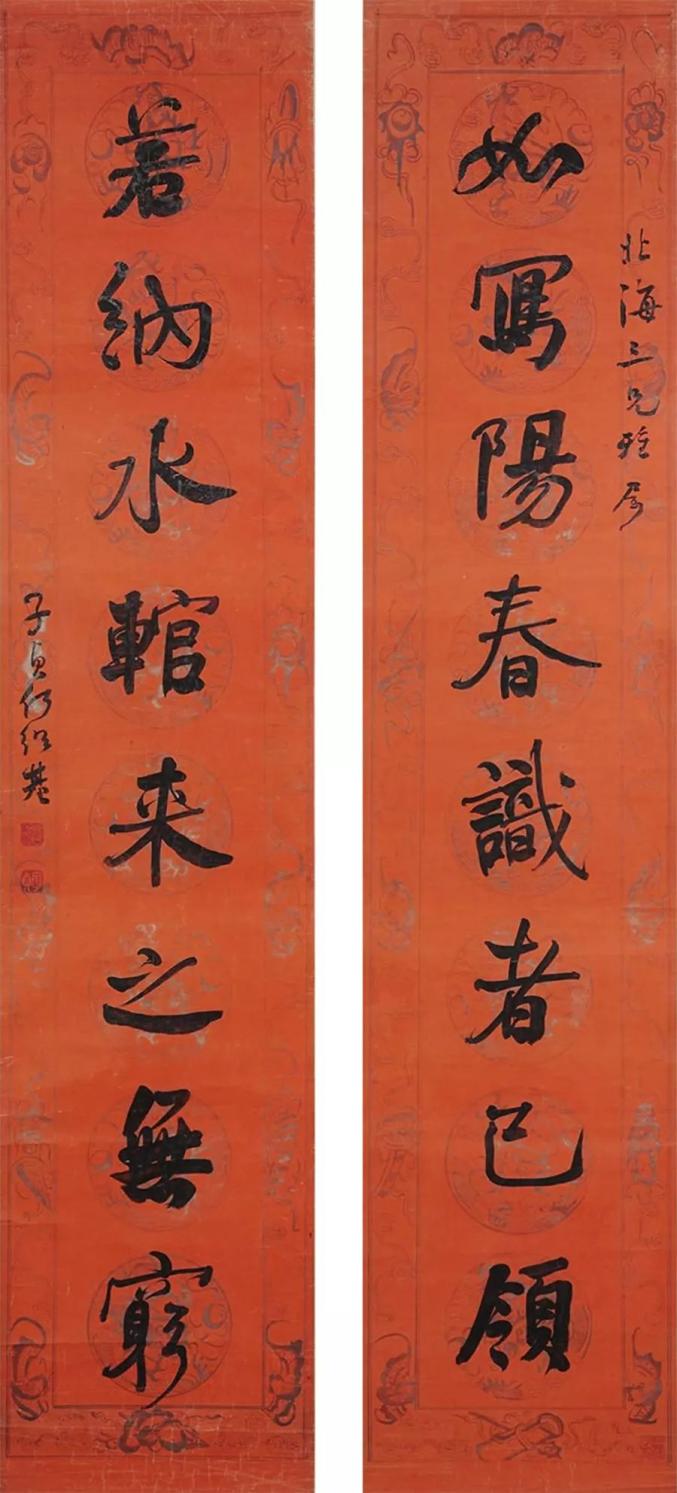 北海三兄雅屬
如寫陽春識者已領
若納水輨来之無窮
子貞何紹基